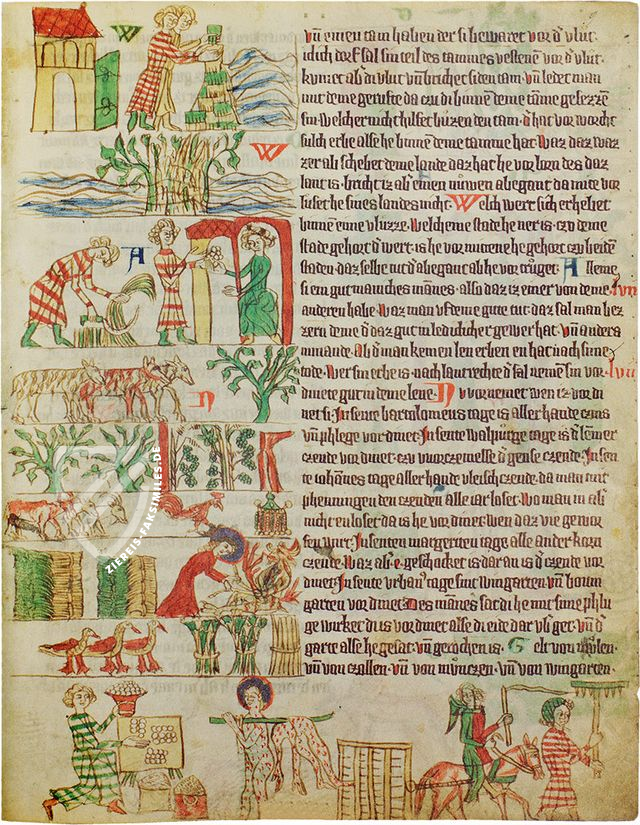 vñ einen tam haben der si bewaret vor d' vlut.
iclich dorf sal sin teil des tammes vestenen vor d' vlut.
kumet ab' di vlut vñ brichet si den tam. vñ ledet man
mit deme gerufte da czu di binnen deme tamme gesezzē
sin. Welcher nicht hilfet buzen den tam. d' hat vor worcht
sulch erbe alse he binnen deme tamme hat. Waz daz waz
zer ab schebet deme lande daz hat he vor lorn des daz
lant is. brichet iz ab' einen nuwen abegant da mite vor
luset he sines landes nicht. Welch wert sich erhebet
binnen eime vluzze. Welcheme stade he ner is. czu deme
stade gehort d' wert. is he vor mittene he gehort czu beiden
staden. daz selbe tut d' abegant ab he vor truget. Alleme
si em gut manches mannes. also daz iz einer von deme
anderen habe. Waz man uf deme gute tut. daz sal man bez
zern deme d' daz gut in ledeclicher gewer hat. vñ anders
nimande. Ab d' man kemen len erben en hat nach sime
tode. Wer sin erbe is. nach lantrechte d' sal neme sin vor
dinete gut in deme lene. Nu vornemet wen iz vor di
net si. In sente bartolomeus tage is aller hande czins
vñ phlege vor dinet. In sente Walpurge tage is d' lemer
czende vor dinet. czu wurczemesse d' gense czende. In sen
te iohānes tage aller hande vleisch czende. da man mit
phenningen den czenden alle iar loset. Wo man in ab'
nicht en loset da is he vor dinet wen daz vie gewor
fen wirt. In senten margerten tage alle ander korn
czende. Waz ab' e geschocket is dar an is d' czende vor
dinet. In sente vrban' tage sint wingarten vñ boum
garten vor dinet. Des mānes sat di he mit sime phlu
ge wirket di is vor dinet alse di eide dar vf get. vñ d'
garte alse he gesat. vñ gerochen is. Gelt von mulen.
vñ von czollen. vñ von munczen. vñ von wingarten.
W
W
A
N
ZIEREIS-FAKSIMILES.DE